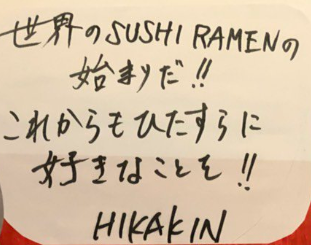 世界のSUSHI RAMENの
始まりだ!!
これからもひたすらに
好きなことを!!
HIKAKIN